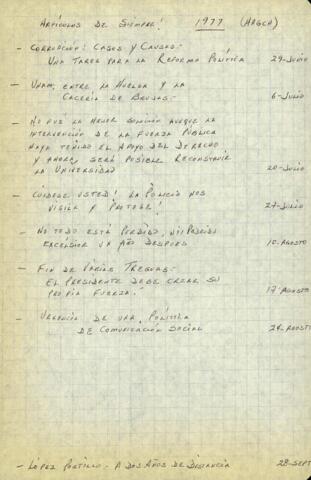 ARTÍCULOS DE SIEMPRE! 1977 (HAGCH)
- CORRUPCIÓN: CASOS Y CAUSAS:-
UNA TAREA PARA LA REFORMA POLÍTICA 29-JUNIO
- UNAM, ENTRE LA HUELGA Y LA
CACERÍA DE BRUJAS:- 6-JULIO
- NO FUE LA MEJOR SOLUCIÓN AUNQUE LA
INTERVENCIÓN DE LA FUERZA PÚBLICA
HAYA TENIDO EL APOYO DEL DERECHO
Y AHORA, SERÁ POSIBLE RECONSTRUIR
LA UNIVERSIDAD 20-JULIO
- CUÍDESE USTED! LA POLICÍA NOS
VIGILA Y PROTEGE! 27-JULIO
- NO TODO ESTÁ PERDIDO,
EXCELSIOR UN AÑO DESPUÉS 10-AGOSTO
- FIN DE VARIAS TREGUAS:-
EL PRESIDENTE DEBE CREAR SU
PROPIA FUERZA! 17-AGOSTO
- URGENCIA DE UNA POLÍTICA
DE COMUNICACIÓN SOCIAL 24-AGOSTO
- LÓPEZ PORTILLO - A DOS AÑOS DE DISTANCIA 28-SEPT